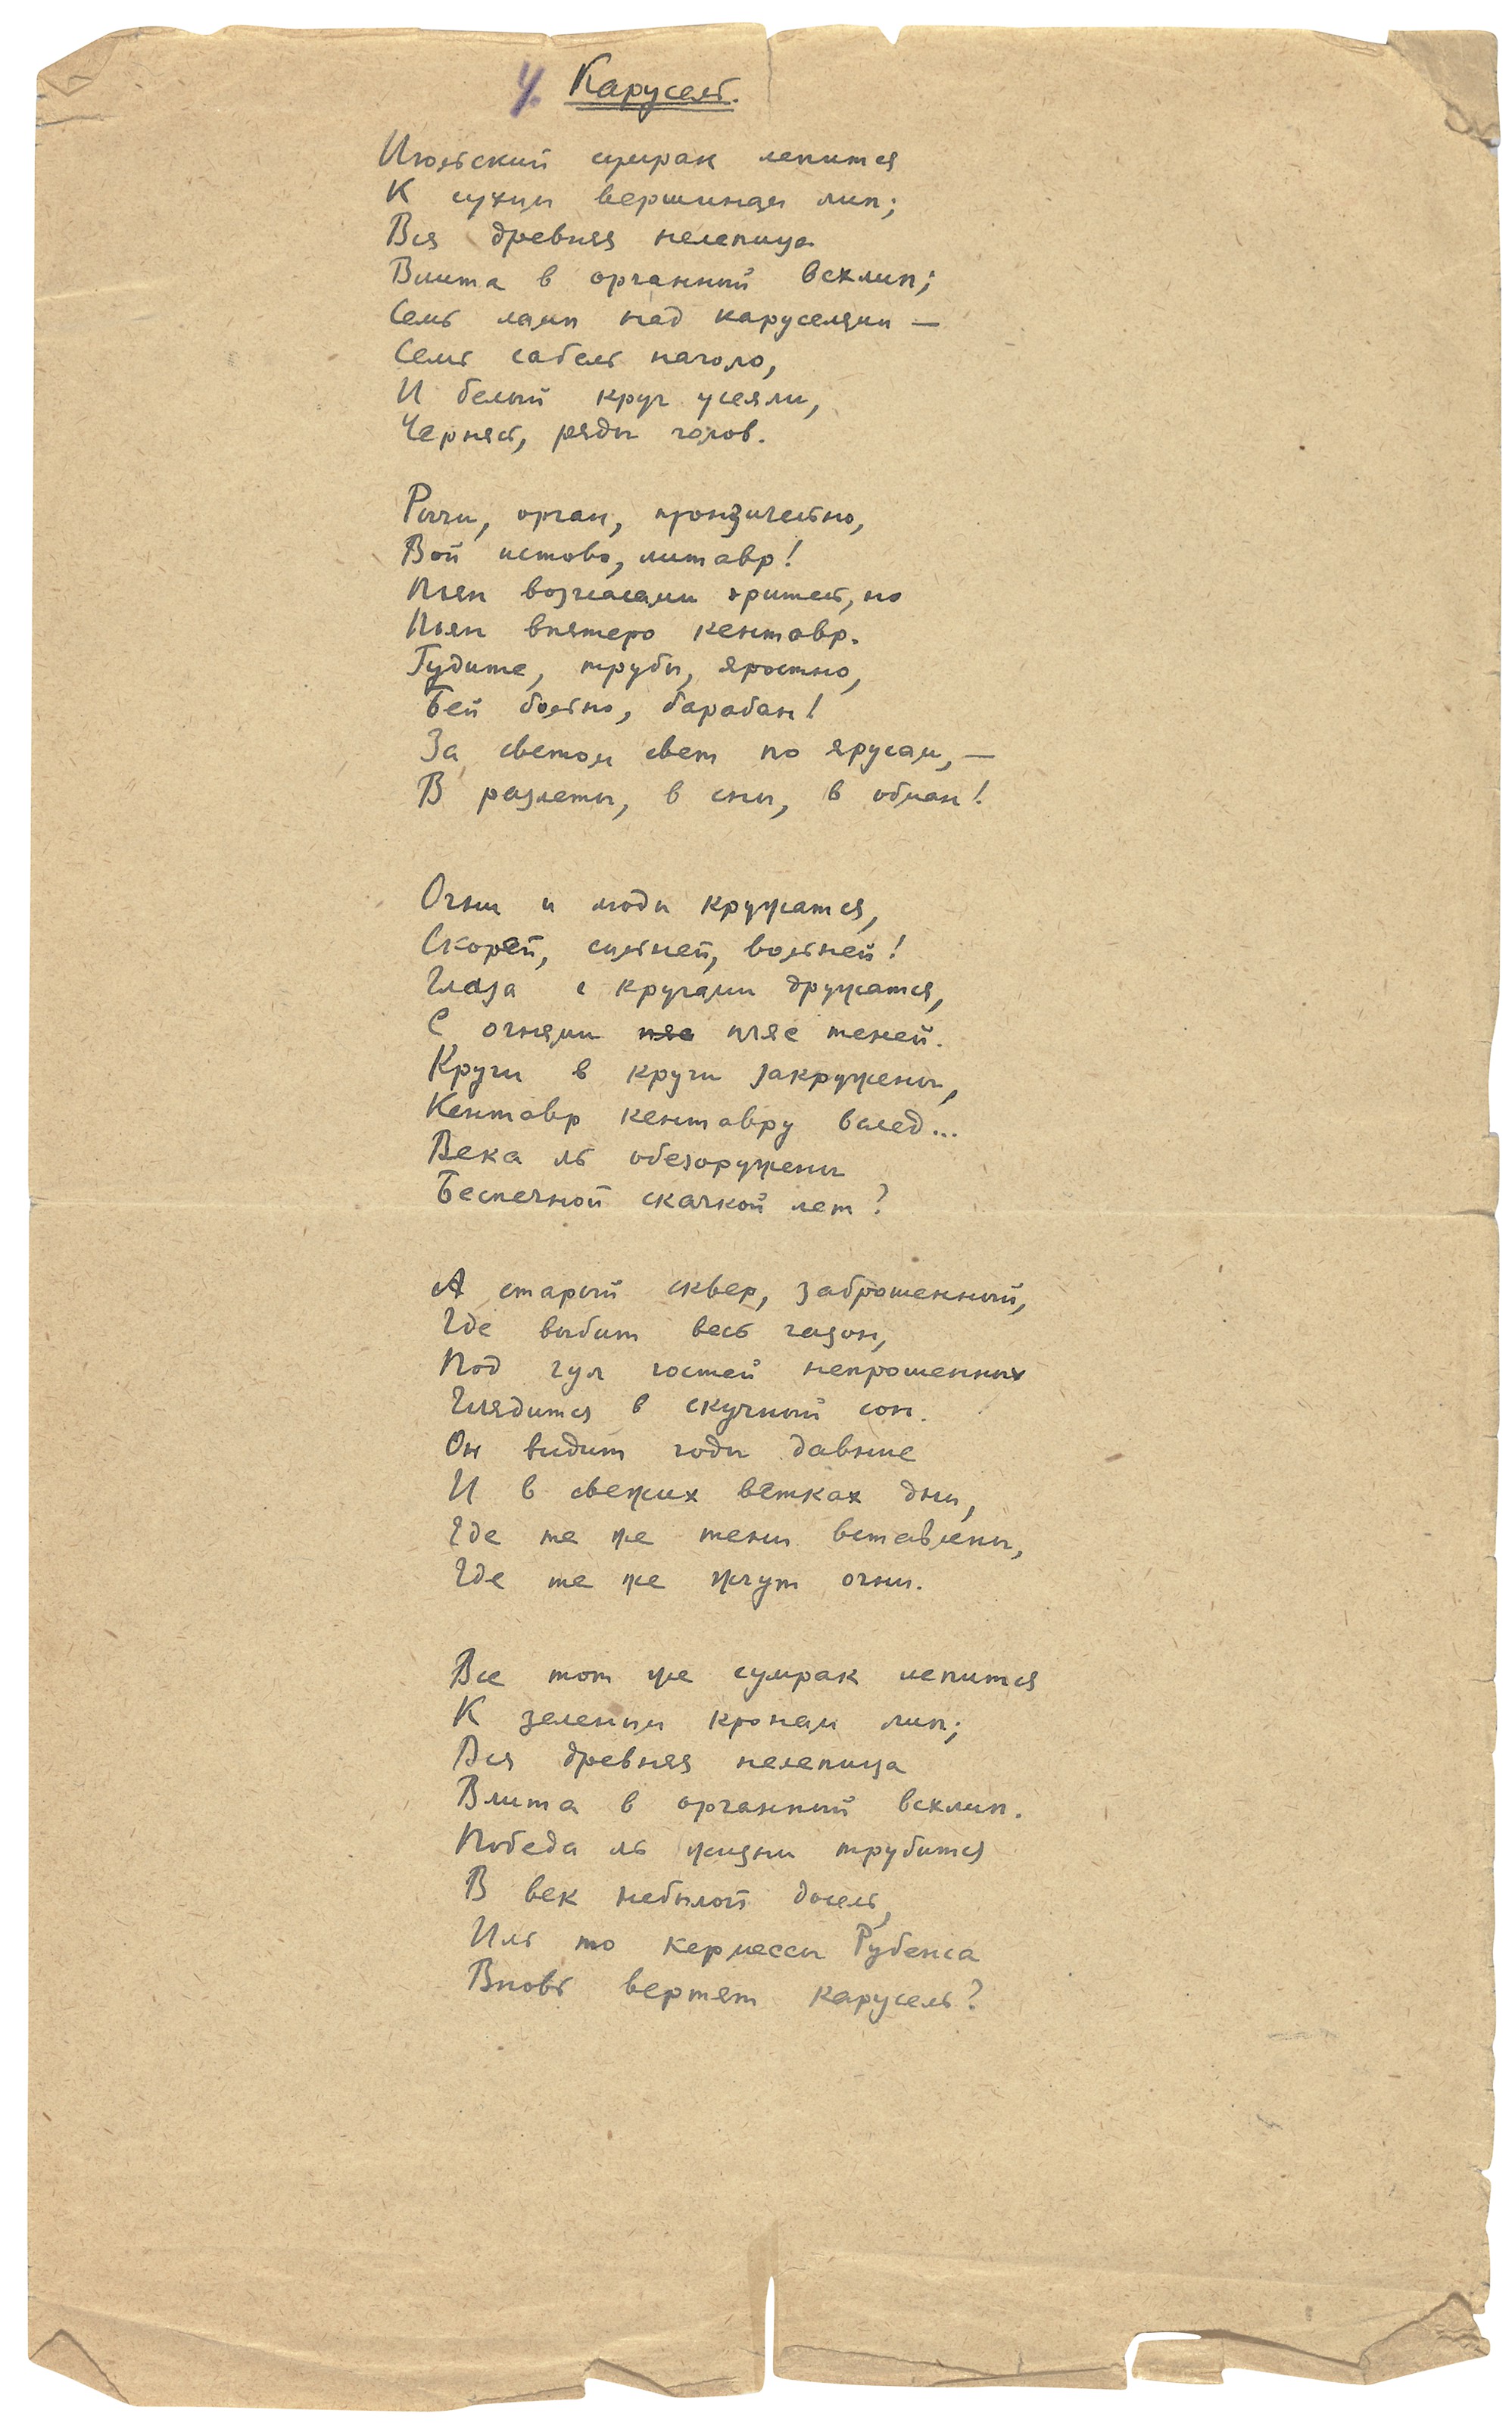 У. Карусель.
Июльский сумрак лепится
К сухим вершинам лип;
Вся древняя нелепица
Влита в органный всхлип;
Семь ламп над каруселями —
Семь сабель наголо,
И белый круг усеяли,
Чернясь, ряды голов.
Рычи, орган, пронзительно,
Вой истово, литавр!
Пьян возгласами зритель, но
Пьян впятеро кентавр.
Гудите, трубы, яростно,
Бей больно, барабан!
За светом свет по ярусам, —
В разлеты, в сны, в обман!
Огни и люди кружатся,
Скорей, сильней, вольней!
Глаза с кругами дружатся,
С огнями пяс пляс теней.
Круги в круги закружены,
Кентавр кентавру вслед...
Века ль обезоружены
Беспечной скачкой лет?
А старый сквер, заброшенный,
Где выбит весь газон,
Под гул гостей непрошенных
Глядится в скучный сон.
Он видит годы давние
И в свежих ветках дни,
Где те же тени вставлены,
Где те же жгут огни.
Все тот же сумрак лепится
К зеленым кронам лип;
Вся древняя нелепица
Влита в органный всхлип.
Победа ль жизни трубится
В век небылой досель,
Иль то кермессы Рубенса
Вновь вертят карусель?